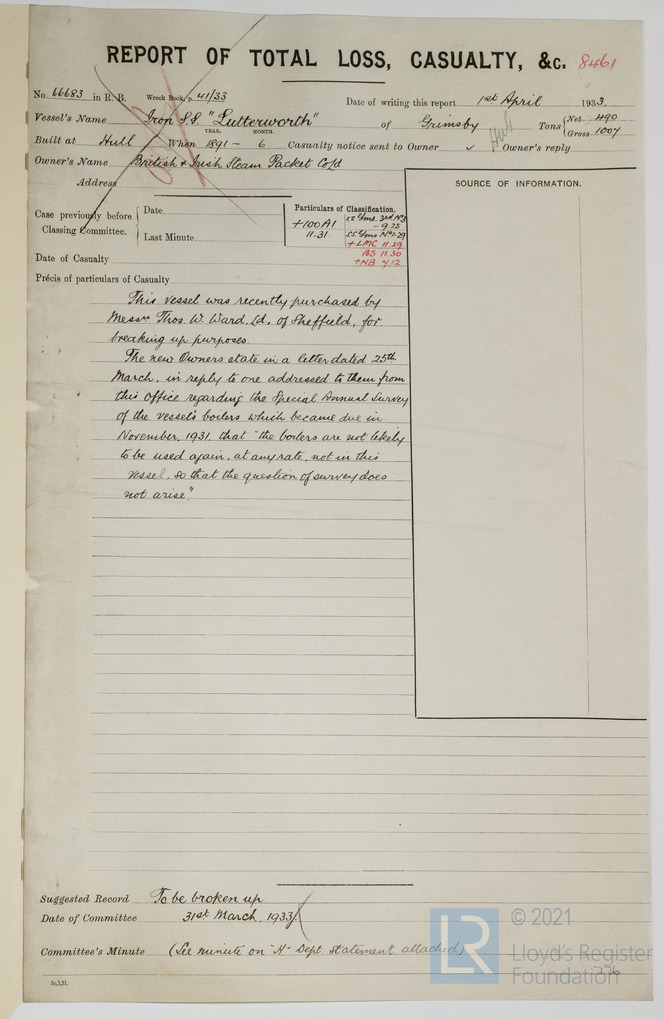 REPORT OF TOTAL LOSS, CASUALTY, &c. 8461
No. 66683 in R. B. Wreck Book, p. 41/33 Date of writing this report 1st April 1933.
Vessel's Name Iron S.S. "Lutterworth" of Grimsby Tons Net 490 Gross 1007
YEAR. MONTH.
Built at Hull When 1891 - 6 Casualty notice sent to Owner ✓ Hull Owner's reply
Owner's Name British & Irish Steam Packet Co Ld
Address
SOURCE OF INFORMATION.
Case previously before Classing Committee.
Date
Last Minute
Particulars of Classification.
+100A1
11.31
SS Gms. 3rd No3
- 9.25
SS Gms No1-29
+LMC 11.29
BS 11.30
+NB 4.12
Date of Casualty
Précis of particulars of Casualty
This vessel was recently purchased by
Messrs Thos. W. Ward, Ld, of Sheffield, for
breaking up purposes.
The new Owners state in a letter dated 25th
March, in reply to one addressed to them from
this Office regarding the Special Annual Survey
of the vessel's boilers which became due in
November, 1931, that "the boilers are not likely
to be used again, at any rate, not in this
vessel, so that the question of survey does
not arise"
Suggested Record To be broken up
Date of Committee 31st March, 1933
Committee's Minute (See minute on "A" Dept statement attached)
5c,1,31.
LR © 2021
Lloyd's Register
Foundation